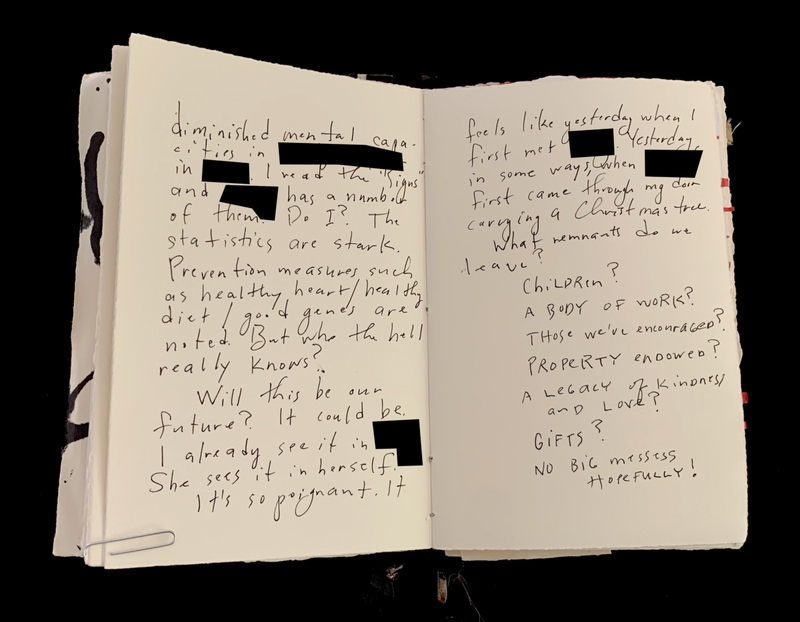 diminished mental capa-
cities in
in I read the "signs"
and has a number
of them. Do I? The
statistics are stark.
Prevention measures such
as healthy heart/healthy
diet/good genes are
noted. But who the hell
really knows?
Will this be our
future? It could be.
I already see it in
She sees it in herself.
It's so poignant. It
feels like yesterday when I
first met Yesterday
in some ways, when
first came through my door
carrying a Christmas tree.
What remnants do we
leave?
CHILDREN?
A BODY OF WORK?
THOSE we've encouraged?
PROPERTY ENDOWED?
A LEGACY of KINDNESS
AND LOVE?
GIFTS?
NO BIG messess
HOPEFULLY!